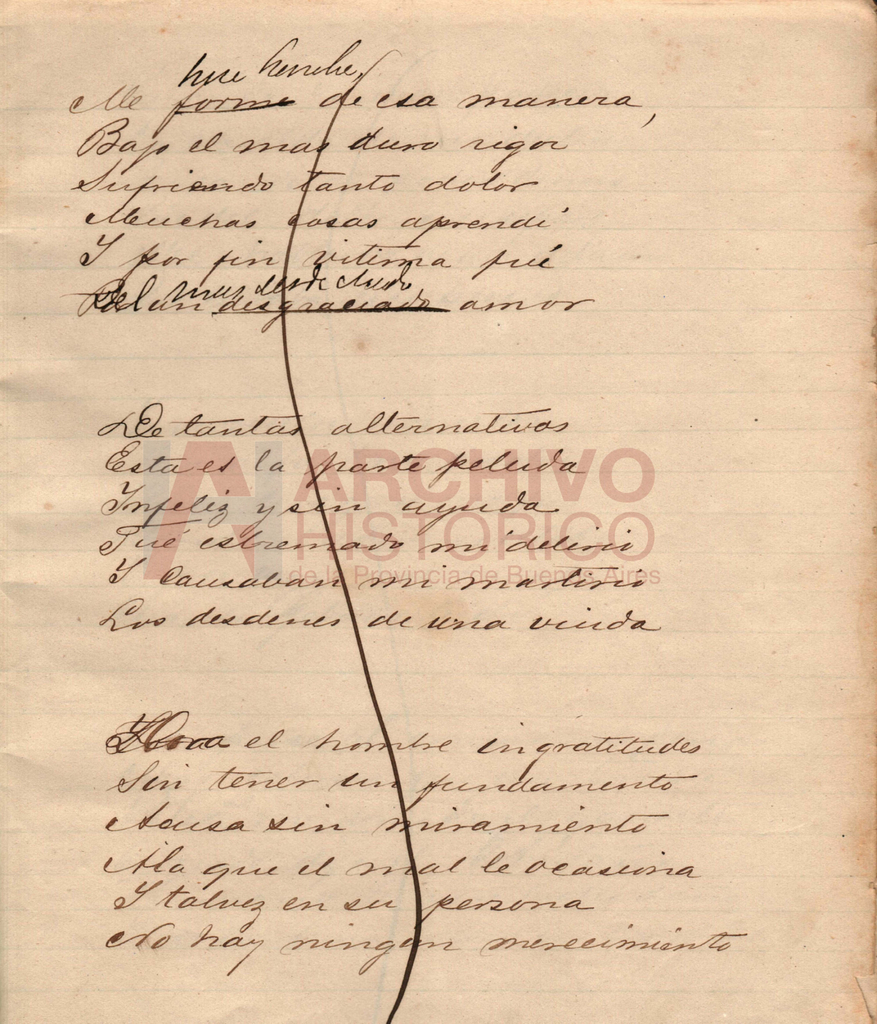 hice hombre,
Me forme de esa manera,
Bajo el mas duro rigor
Sufriendo tanto dolor
Muchas cosas aprendi
Y por fin vitima fué
mas desdichado
Del un desgraciado amor
De tantas alternativas
Esta es la parte peluda
Infeliz y sin ayuda
Fué estremado mi delirio
Y causaban mi martirio
Los desdenes de una viuda
Llora el hombre ingratitudes
Sin tener un fundamento
Acusa sin miramiento
A la que el mal le ocasiona
Y talvez en su persona
No hay ningun merecimiento
ARCHIVO
HISTORICO
de la Provincia de Buenos Aires